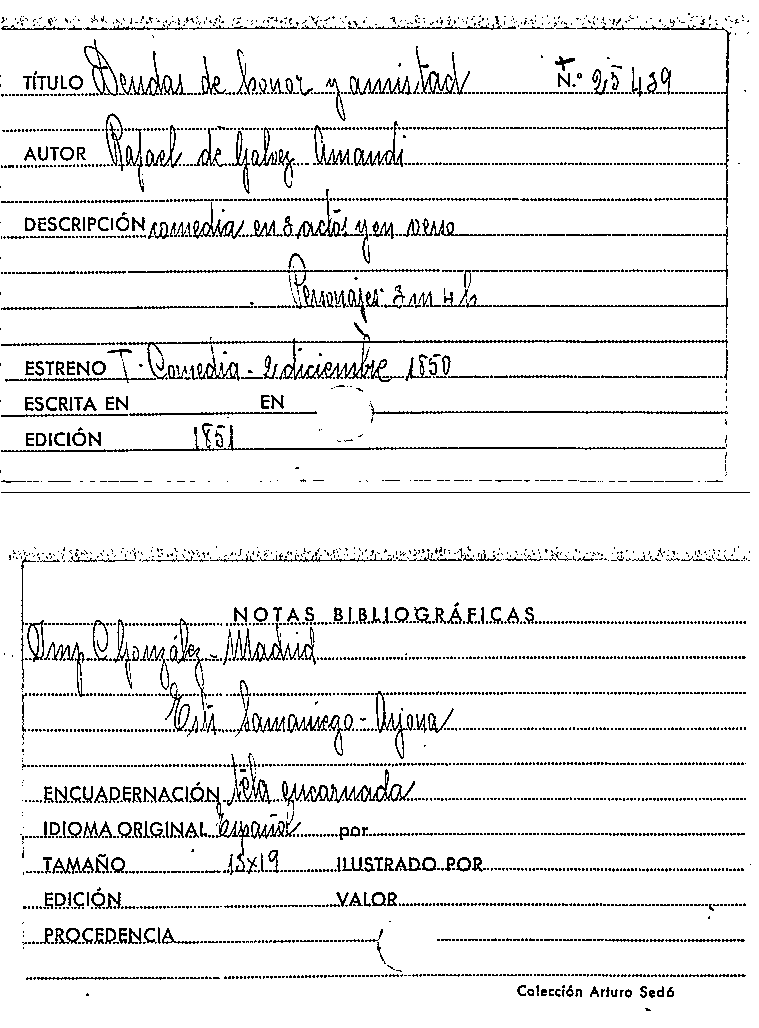 TÍTULO Deudas de honor y amistad N.º 25439
AUTOR Rafael de Galvez Amandi
DESCRIPCIÓN comedia en 3 actos y en verso
Personajes: 3 m 4 h
ESTRENO T. Comedia - 2 diciembre 1850
ESCRITA EN EN
EDICIÓN 1851
NOTAS BIBLIOGRÁFICAS
Imp C. González - Madrid
Estr Samaniego - Arjona
ENCUADERNACIÓN tela encarnada
IDIOMA ORIGINAL español por
TAMAÑO 13x19 ILUSTRADO POR
EDICIÓN VALOR
PROCEDENCIA
Colección Arturo Sedó